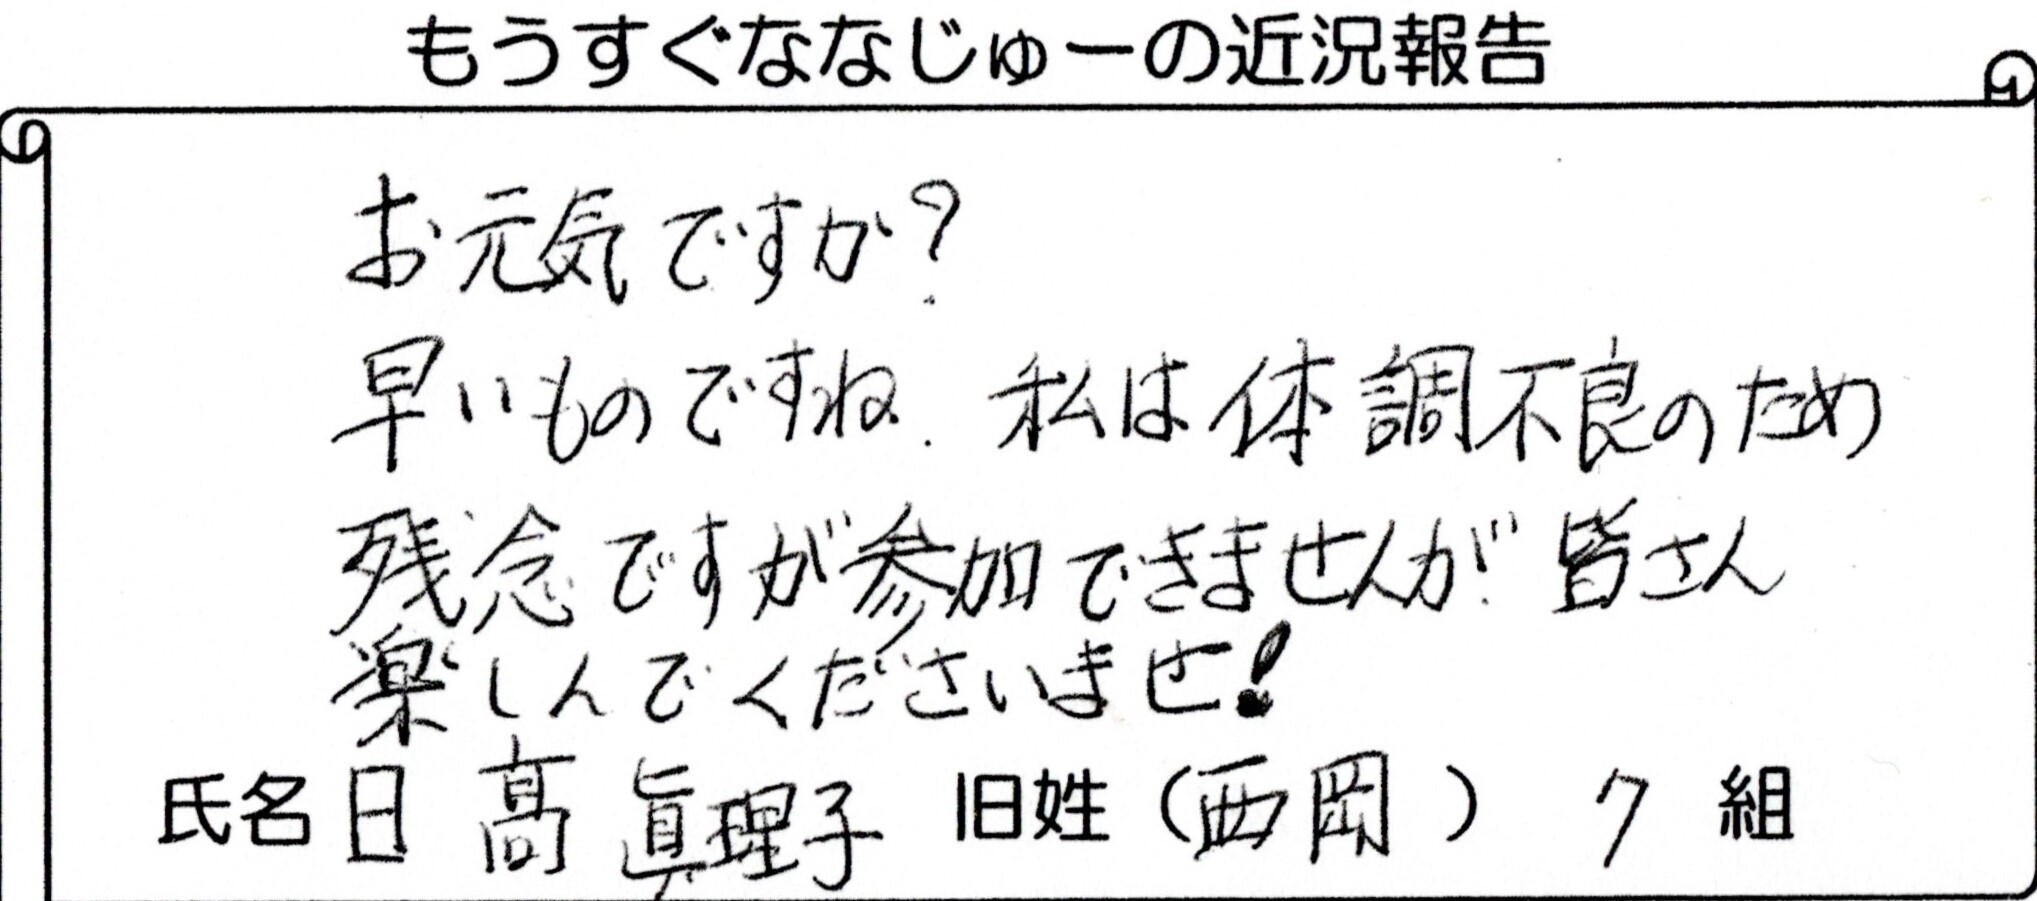 もうすぐななじゅーの近況報告
お元気ですか?
早いものですね. 私は体調不良のため
残念ですが参加できませんが 皆さん
楽しんでくださいませ!
氏名 日髙 眞理子 旧姓(西岡) 7 組